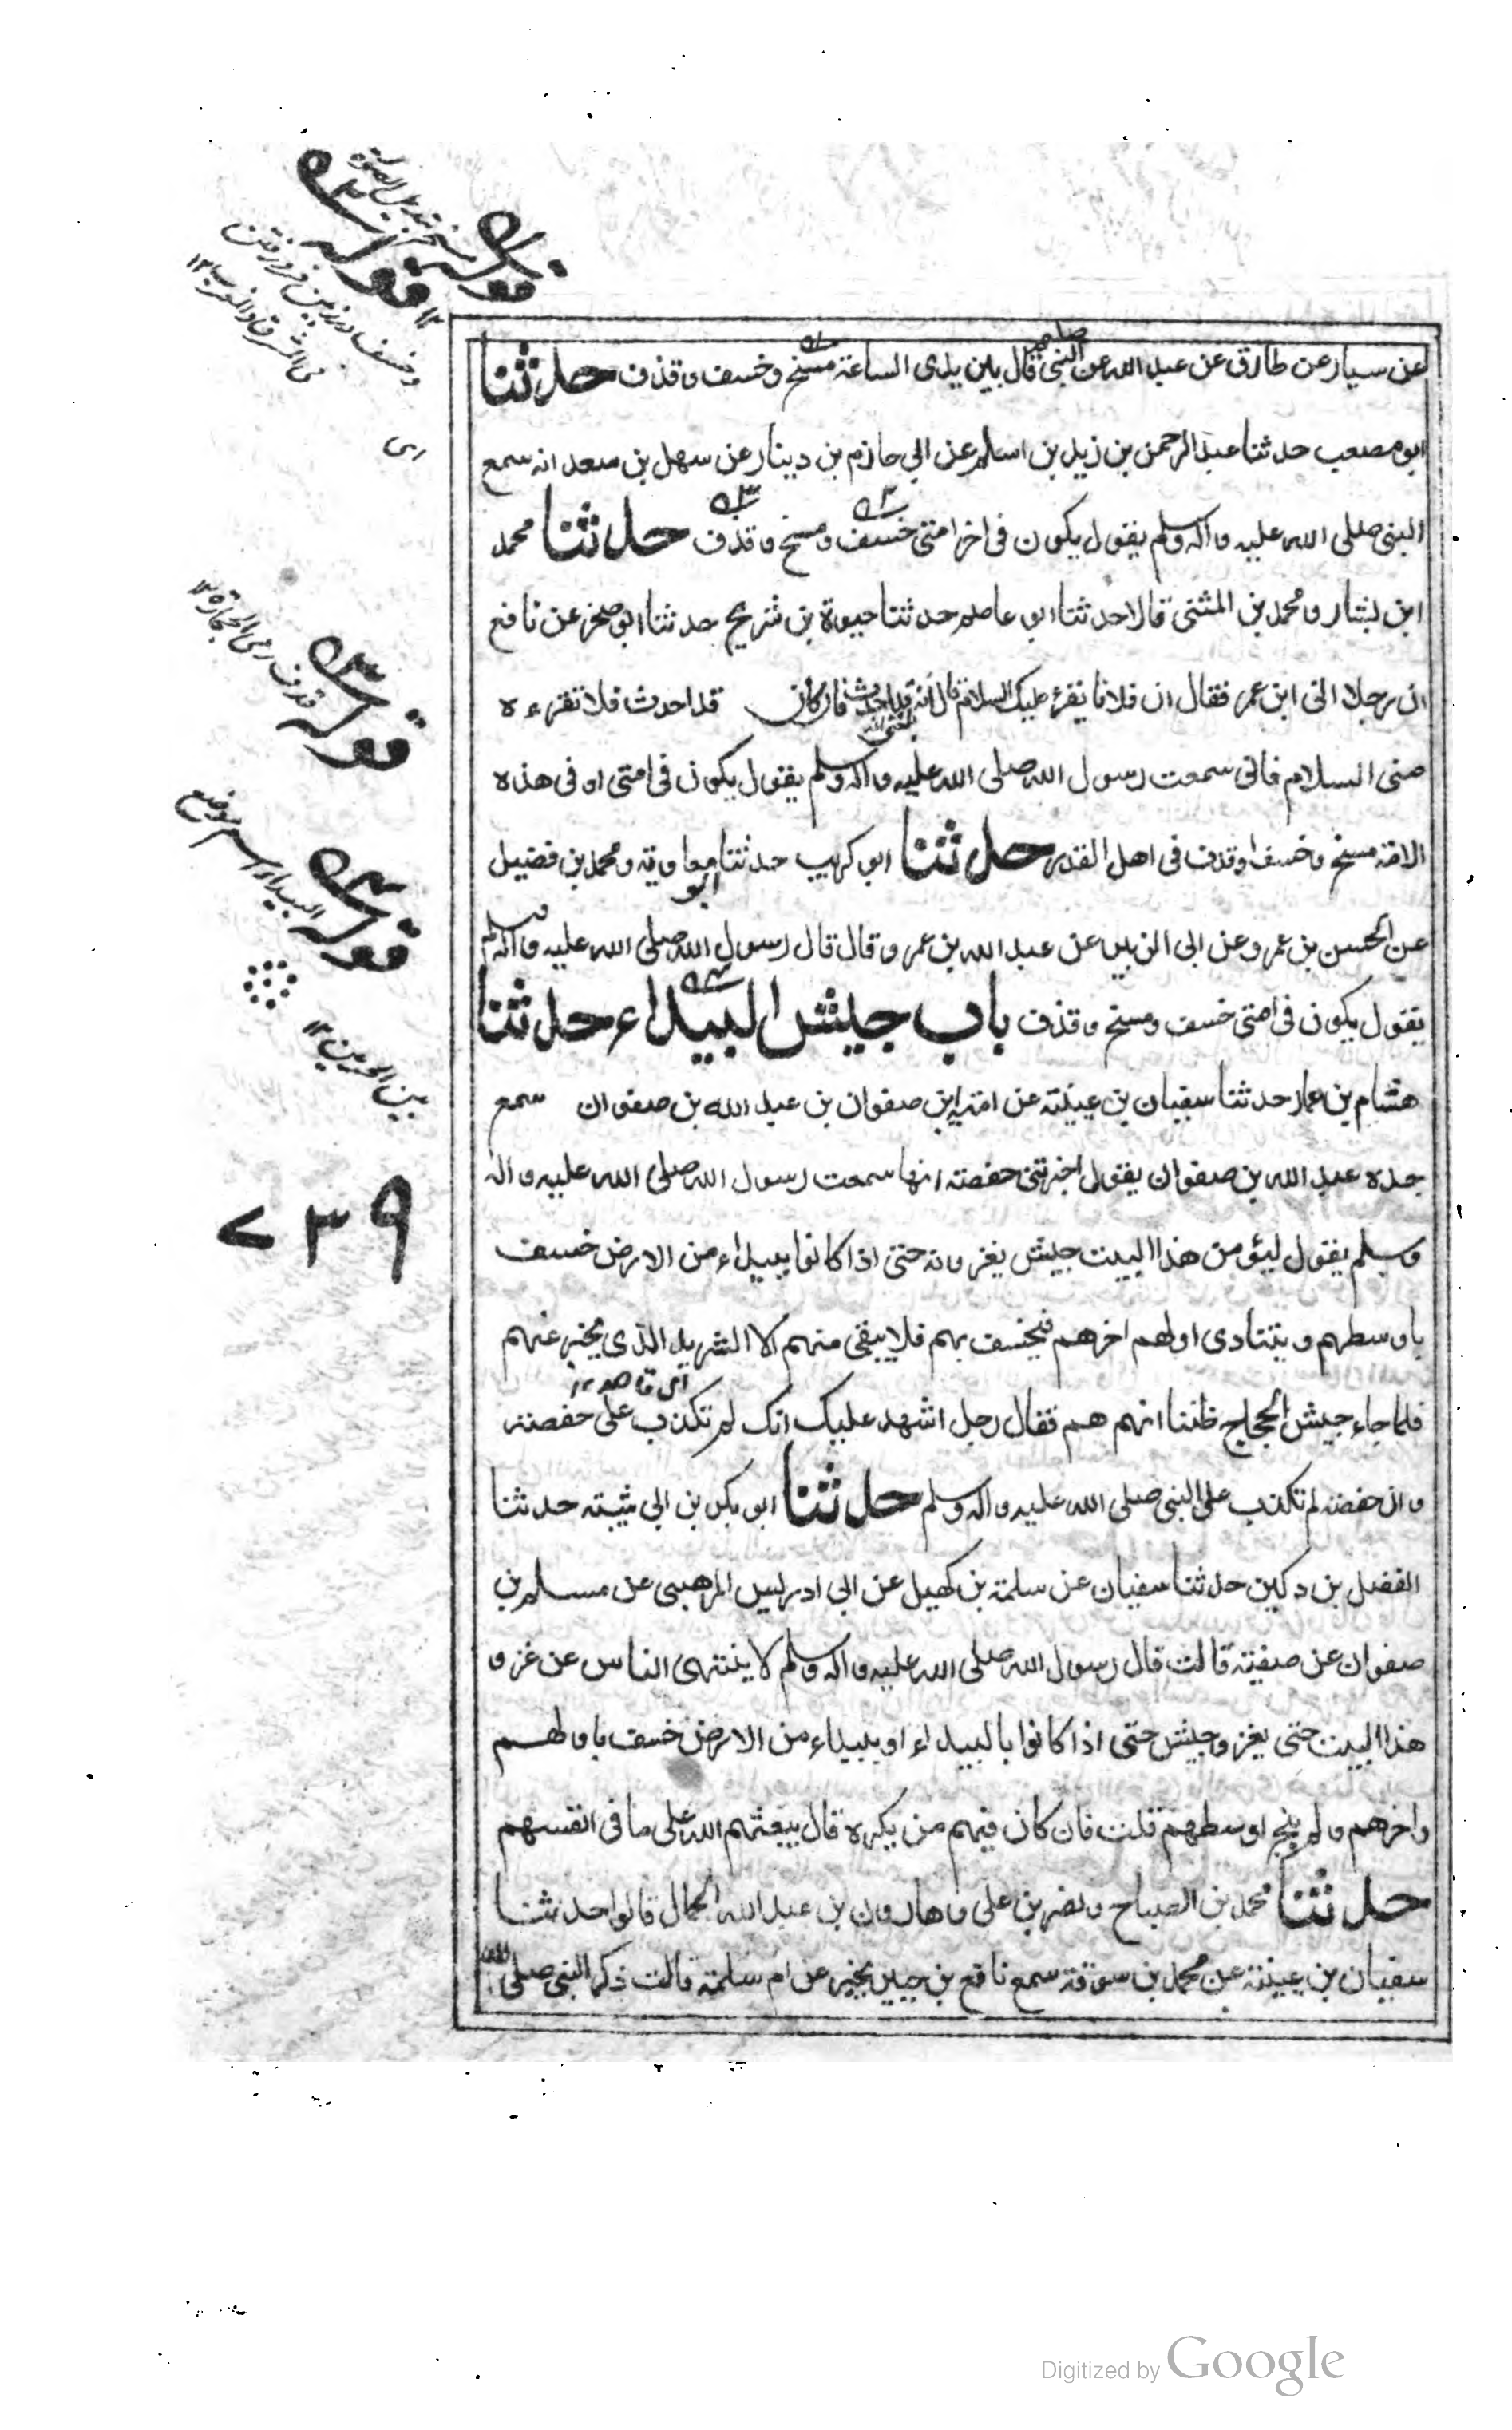 عن سيار عن طارق عن عبد الله عن النبى صلعم قال بين يدى الساعة مسخ وخسف وقذف حدثنا
ابو مصعب حدثنا عبد الرحمن بن زيد بن اسلم عن ابى حازم بن دينار عن سهل بن سعد انه سمع
النبى صلى الله عليه واله وسلم يقول يكون فى اخر امتى خسف ومسخ وقذف حدثنا محمد
ابن بشار ومحمد بن المثنى قالا حدثنا ابو عاصم حدثنا حيوة بن شريح حدثنا ابو صخر عن نافع
ان رجلا اتى ابن عمر فقال ان فلانا يقرئ عليك السلام قال انه قد احدث فان كان قد احدث فلا تقرءه
منى السلام فانى سمعت رسول الله صلى الله عليه واله وسلم يقول يكون فى امتى او فى هذه
الامة مسخ وخسف او قذف فى اهل القدر حدثنا ابو كريب حدثنا ابو معاوية ومحمد بن فضيل
عن الحسن بن عمرو عن ابى الزبير عن عبد الله بن عمرو قال قال رسول الله صلى الله عليه واله وسلم
يقول يكون فى امتى خسف ومسخ وقذف باب جيش البيداء حدثنا
هشام بن عمار حدثنا سفيان بن عيينة عن امية ابن صفوان بن عبد الله بن صفوان سمع
جده عبد الله بن صفوان يقول اخبرتنى حفصة انها سمعت رسول الله صلى الله عليه واله
وسلم يقول ليؤمن هذا البيت جيش يغزونه حتى اذا كانوا ببيداء من الارض خسف
باوسطهم ويتنادى اولهم اخرهم فيخسف بهم فلا يبقى منهم الا الشريد الذى يخبر عنهم
اى قاصد ١٢
فلما جاء جيش الحجاج ظننا انهم هم فقال رجل اشهد عليك انك لم تكذب على حفصة
وان حفصة لم تكذب على النبى صلى الله عليه واله وسلم حدثنا ابو بكر بن ابى شيبة حدثنا
الفضل بن دكين حدثنا سفيان عن سلمة بن كهيل عن ابى ادريس المرهبى عن مسلم بن
صفوان عن صفية قالت قال رسول الله صلى الله عليه واله وسلم لا ينتهى الناس عن غزو
هذا البيت حتى يغزو جيش حتى اذا كانوا بالبيداء او ببيداء من الارض خسف باولهم
واخرهم ولم ينج اوسطهم قلت فان كان فيهم من يكره قال يبعثهم الله على ما فى انفسهم
حدثنا محمد بن الصباح ونصر بن على وهارون بن عبد الله الجمال قالوا حدثنا
سفيان بن عيينة عن محمد بن سوقة سمع نافع بن جبير يخبر عن ام سلمة قالت ذكر النبى صلى الله
قوله
قوله
وخسف در زمين فرو رفتن
اى
قوله قذف رمى الحجارة ١٢
قوله البيداء اسم موضع
بين الحرمين ١٢
٧٣٩
Digitized by Google